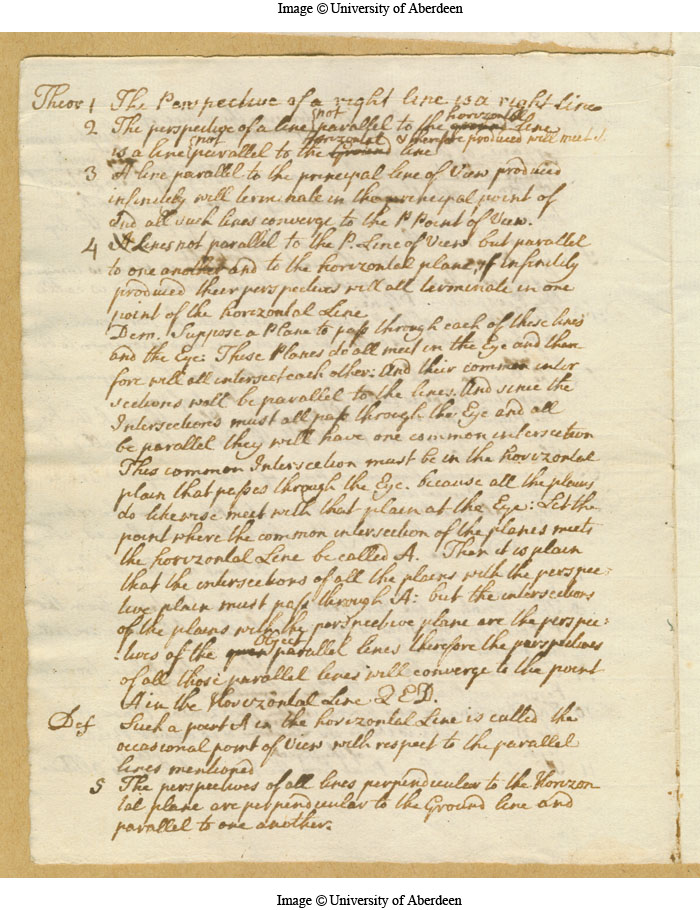 Image © University of Aberdeen
Theor 1 The Perspective of a right line is a right Line
2 The perspective of a line not parallel to the horizontal ground Line
is a line not parallel to the horizontal (Ground) line & therefore produced will meet it.
3 A line parallel to the principal line of View produced
infinitely will terminate in the principal point of
and all such lines converge to the P Point of View.
4 A Lines not parallel to the P. Line of View but parallel
to one another and to the horizontal plane, if infinitely
produced their perspectives will all terminate in one
point of the horizontal Line
Dem. Suppose a Plane to pass through each of these lines
and the Eye: These Planes do all meet in the Eye and there
fore will all intersect each other: And their common inter
sections will be parallel to the lines. And since the
Intersections must all pass through the Eye and all
be parallel they will have one common intersection
This common Intersection must be in the horizontal
plain that passes through the Eye. because all the plains
do likewise meet with that plain at the Eye: Let the
point where the common intersection of the planes meets
the horizontal Line be called A. Then it is plain
that the intersections of all the plains with the perspec-
tive plain must pass through A: but the intersections
of the plains with the perspective plane are the perspec-
tives of the Object parallel lines therefore the perspectives
of all those parallel lines will converge to the point
A in the Horizontal Line Q E D.
Def Such a point A in the horizontal Line is called the
occasional point of View with respect to the parallel
lines mentioned
5 The perspectives of all lines perpendicular to the Horizon
tal plane are perpendicular to the Ground line and
parallel to one another.
Image © University of Aberdeen